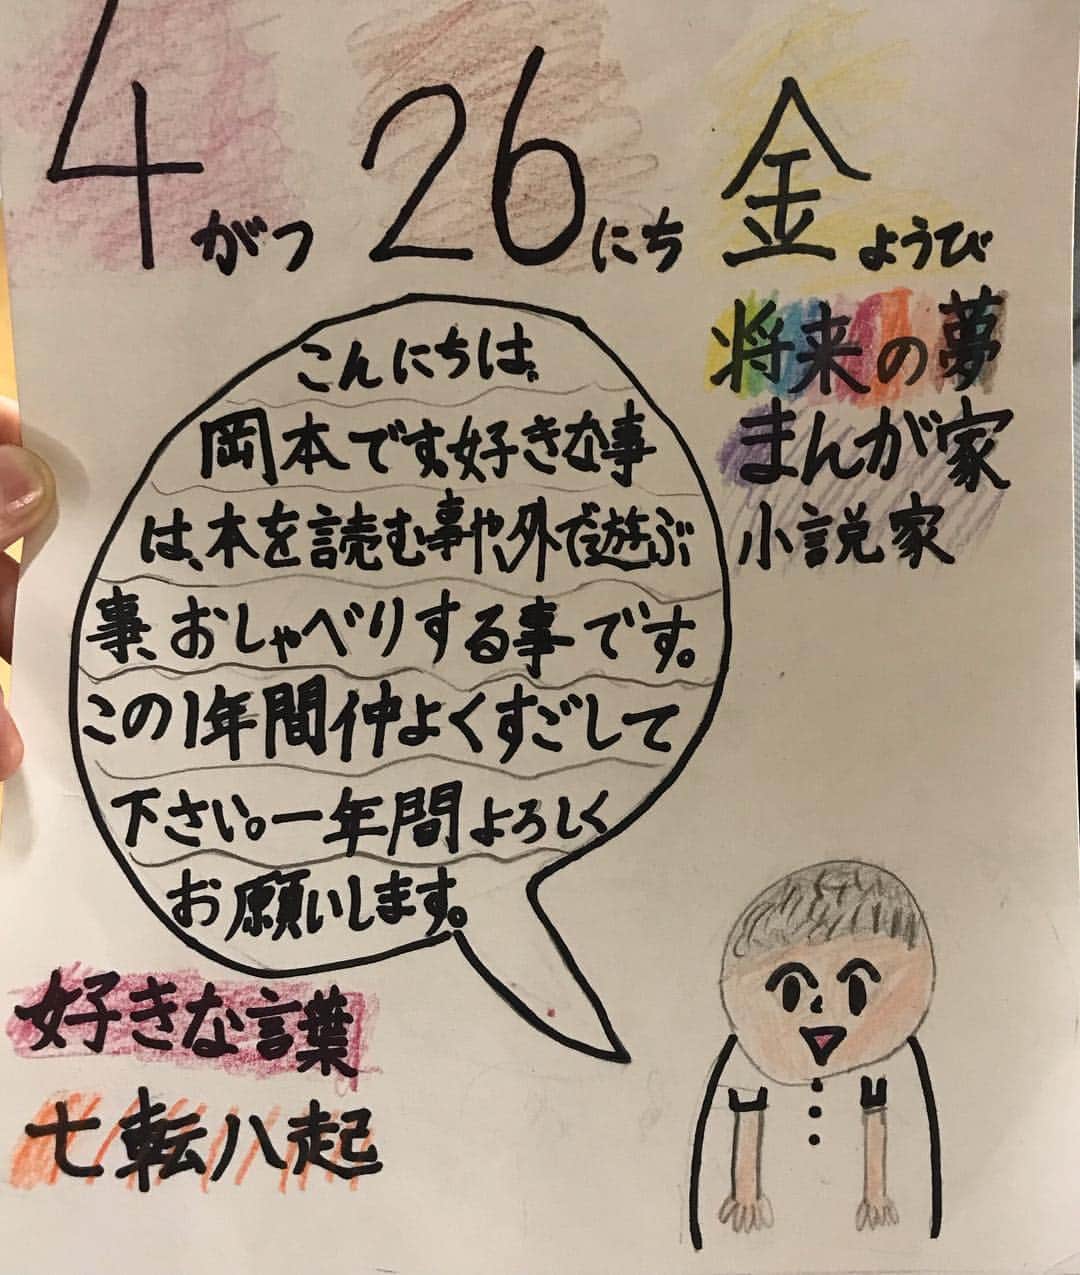 4がつ 26にち 金ようび
将来の夢
まんが家
小説家
こんにちは。
岡本です。好きな事
は、本を読む事や、外で遊ぶ
事、おしゃべりする事です。
この1年間仲よくすごして
下さい。一年間よろしく
お願いします。
好きな言葉
七転八起